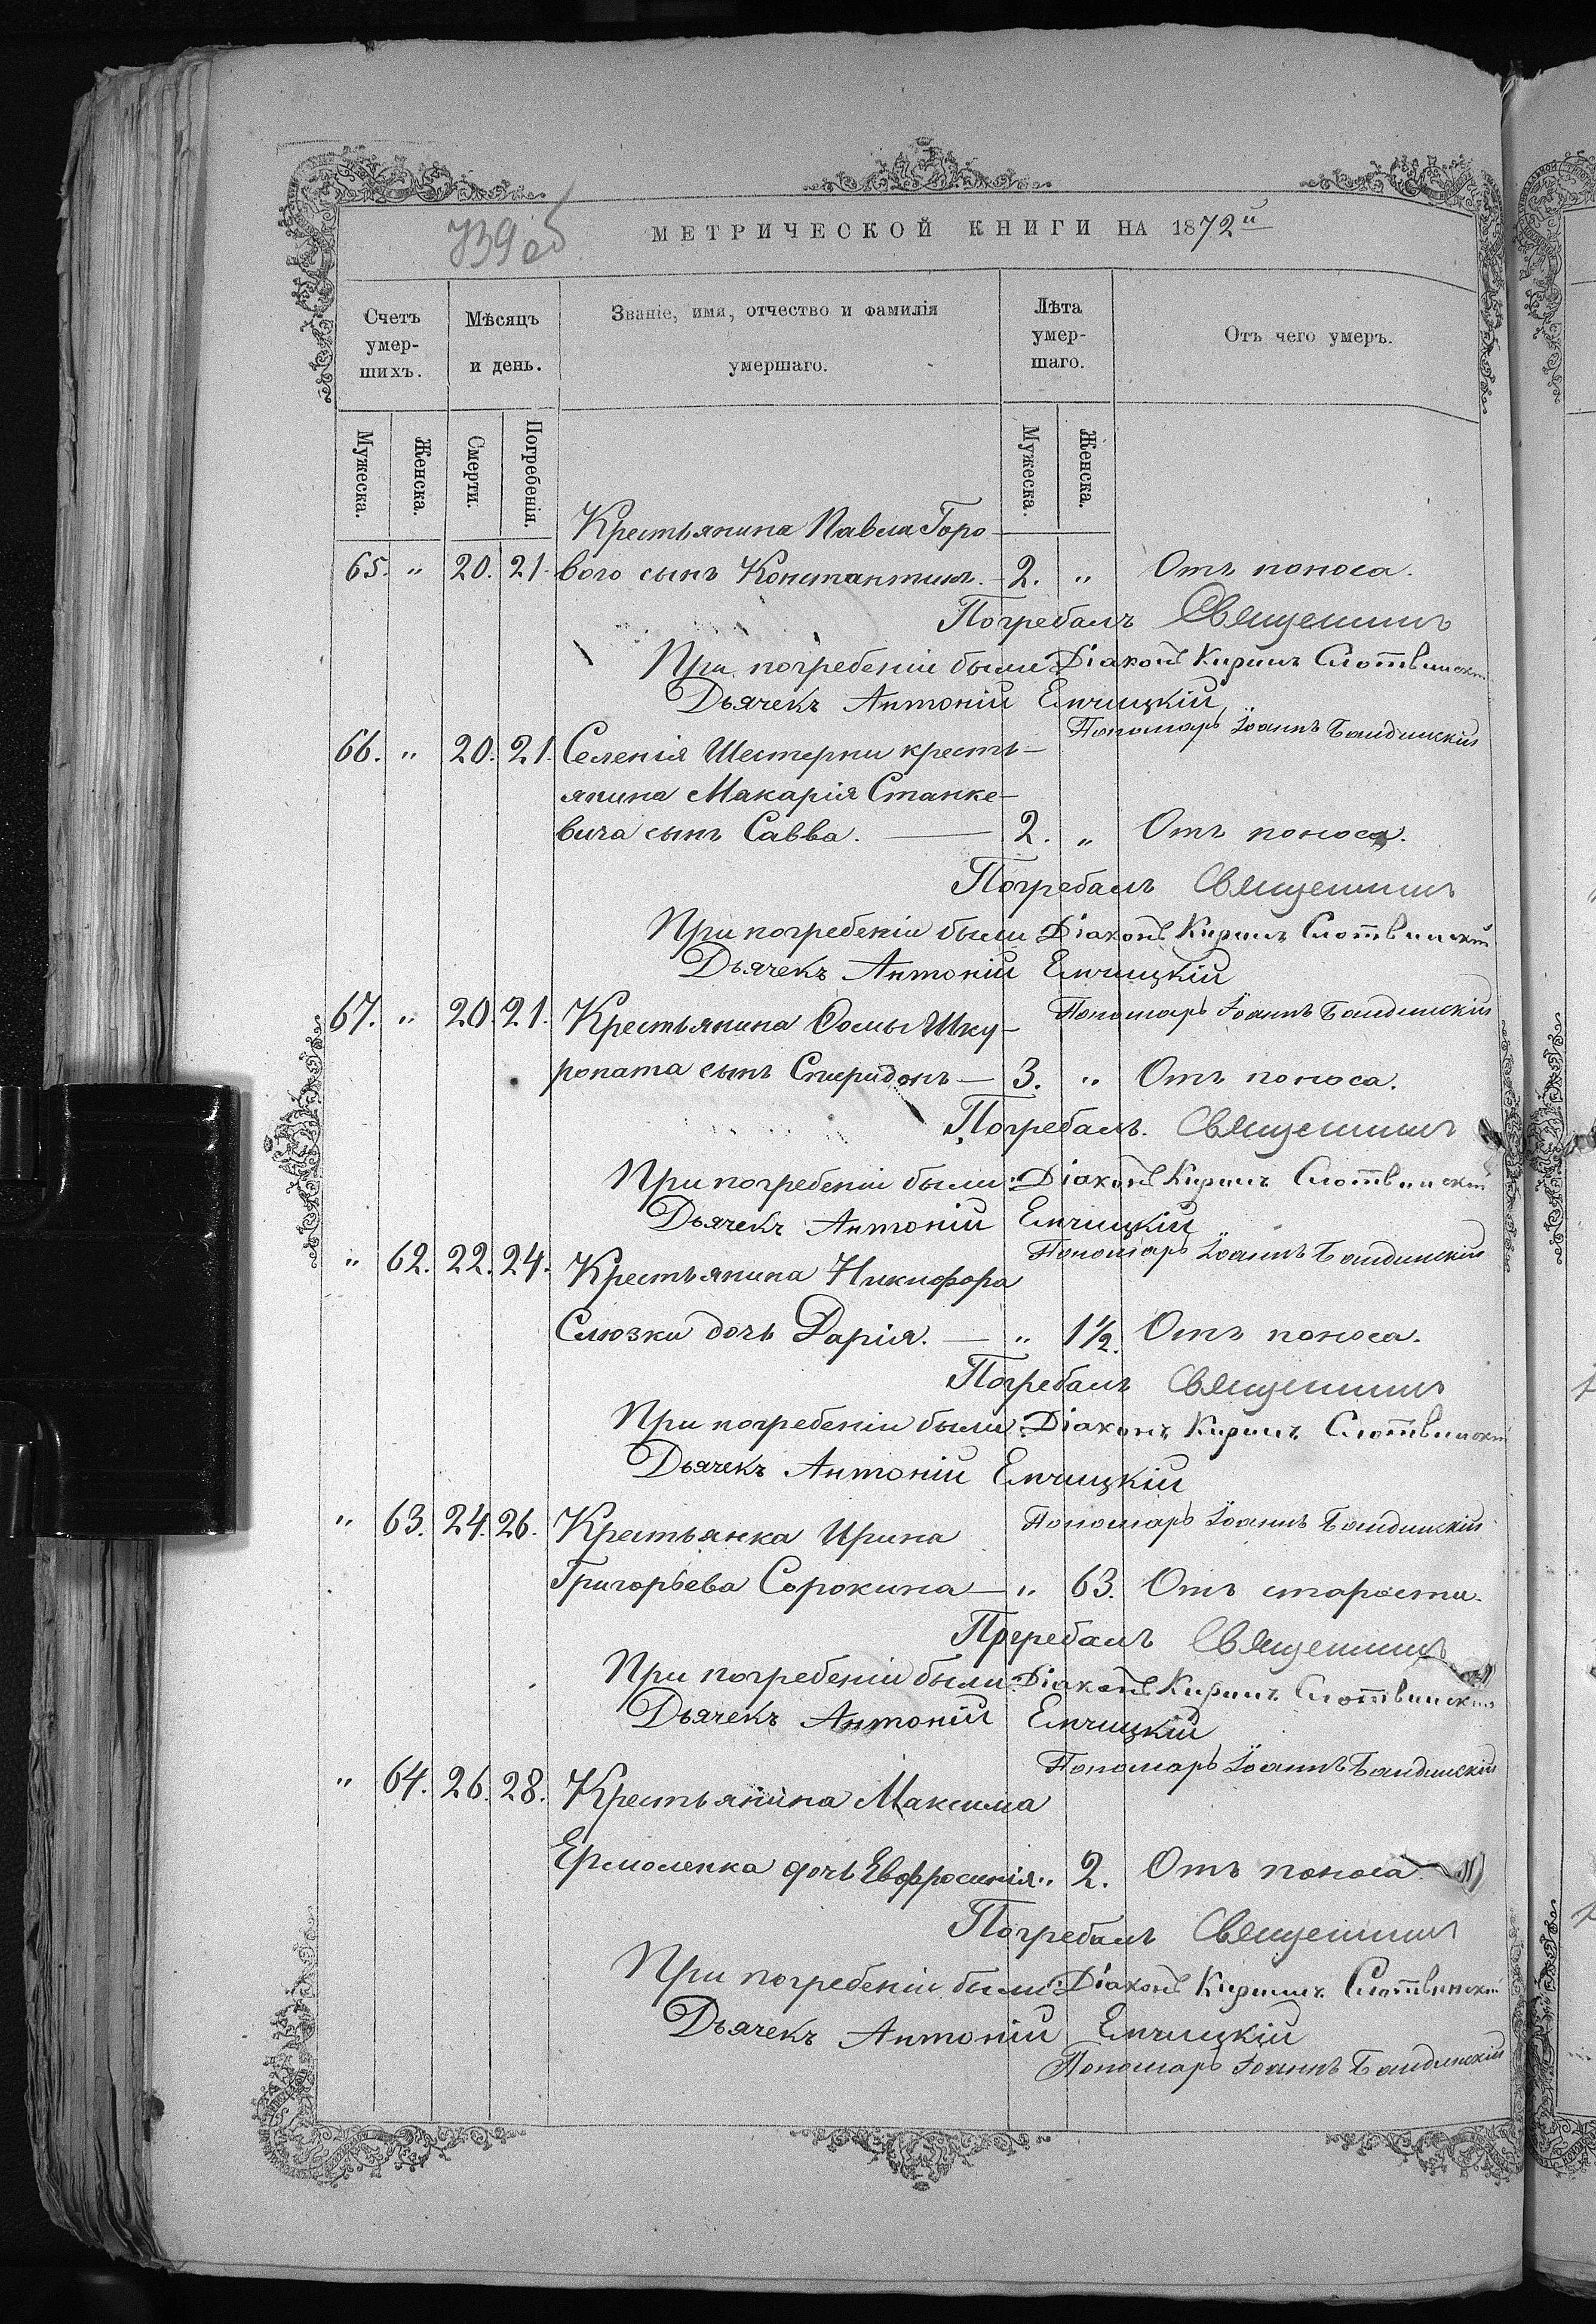 739 об
МЕТРИЧЕСКОЙ КНИГИ НА 1872й
Счетъ умер-шихъ.
Мѣсяцъ и день.
Званіе, имя, отчество и фамилія умершаго.
Лѣта умер-шаго.
Отъ чего умеръ.
Мужеска.
Женска.
Смерти.
Погребенія.
Мужеска.
Женска.
Крестьянина Павла Горо-
65. " 20. 21. вого сынъ Константинъ. — 2. " Отъ поноса.
Погребалъ Священникъ
При погребеніи были: Діаконъ Кирилъ Слотвинскій
Дьячекъ Антоній Емчицкій
Пономарь Іоаннъ
66. " 20. 21. Селенія Шестерни кресть-
янина Макарія Станке-
вича сынъ Савва. — 2. " Отъ поноса.
Погребалъ Священникъ
При погребеніи были Діаконъ Кирилъ Слотвинскій
Дьячекъ Антоній Емчицкій
Пономарь Іоаннъ
67. " 20. 21. Крестьянина Ѳомы Шку-
ропата сынъ Спиридонъ — 3. " Отъ поноса.
Погребалъ. Священникъ
При погребеніи были: Діаконъ Кирилъ Слотвинскій
Дьячекъ Антоній Емчицкій
Пономарь Іоаннъ
" 62. 22. 24. Крестьянина Никифора
Слюзки дочь Дарія. — " 1½. Отъ поноса.
Погребалъ Священникъ
При погребеніи были: Діаконъ Кирилъ Слотвинскій
Дьячекъ Антоній Емчицкій
Пономарь Іоаннъ
" 63. 24. 26. Крестьянка Ирина
Григорьева Сорокина — " 63. Отъ старости.
Погребалъ Священникъ
При погребеніи были: Діаконъ Кирилъ Слотвинскій
Дьячекъ Антоній Емчицкій
Пономарь Іоаннъ
" 64. 26. 28. Крестьянина Максима
Ермоленка дочь Евфросинія " 2. Отъ поноса.
Погребалъ Священникъ
При погребеніи были: Діаконъ Кирилъ Слотвинскій
Дьячекъ Антоній Емчицкій
Пономарь Іоаннъ